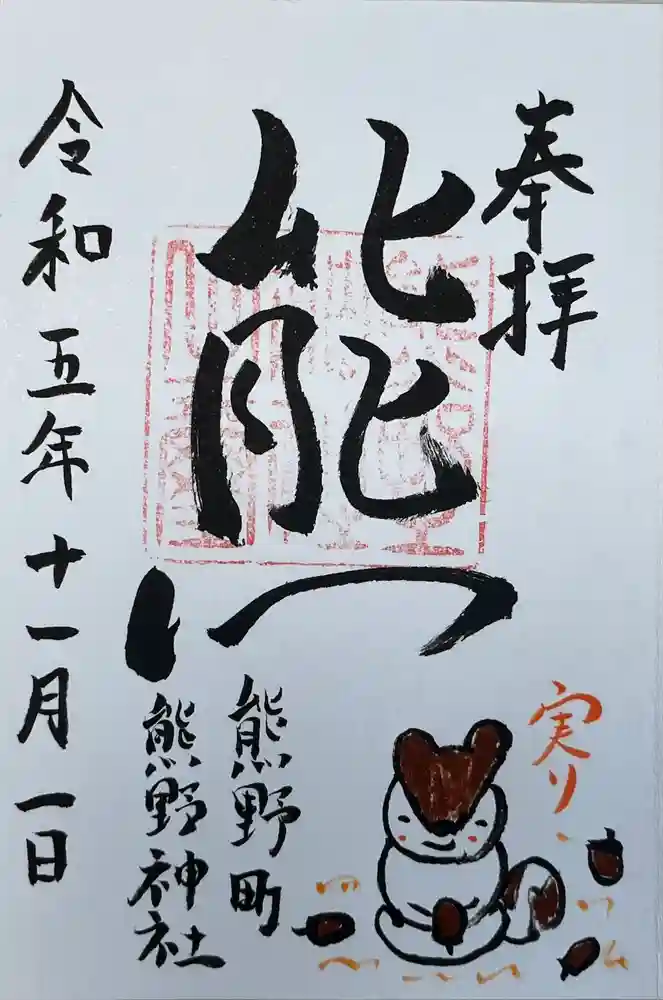 奉拝
熊
実り
熊野町
熊野神社
令和五年十一月一日